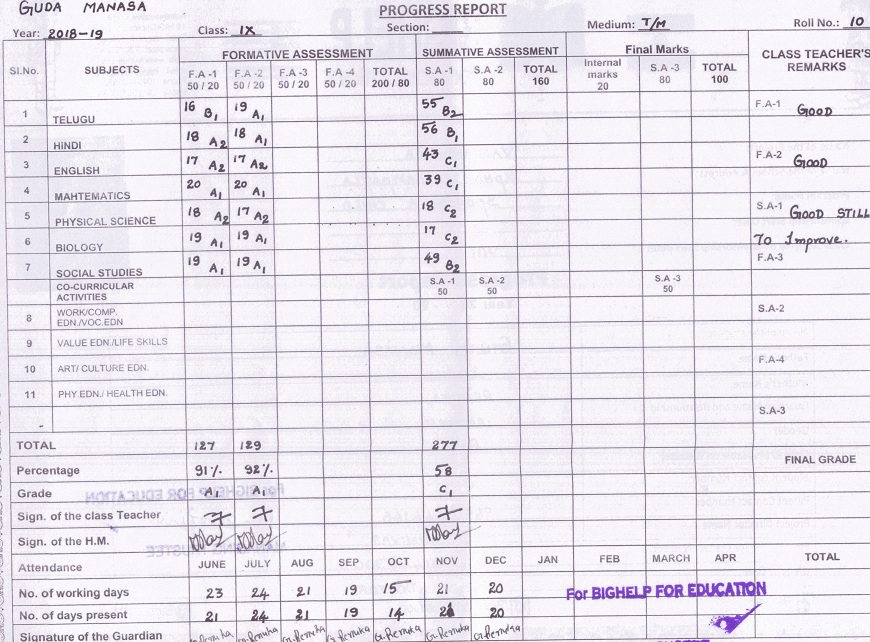 GUDA MANASA
PROGRESS REPORT
Year: 2018-19 Class: IX Section: Medium: T/M Roll No.: 10
Sl.No. SUBJECTS FORMATIVE ASSESSMENT SUMMATIVE ASSESSMENT Final Marks CLASS TEACHER'S REMARKS
F.A -1 50 / 20 F.A -2 50 / 20 F.A -3 50 / 20 F.A -4 50 / 20 TOTAL 200 / 80 S.A -1 80 S.A -2 80 TOTAL 160 Internal marks 20 S.A -3 80 TOTAL 100
1 TELUGU 16 B1 19 A1 55 B2 F.A-1 GOOD
2 HINDI 18 A2 18 A1 56 B1
3 ENGLISH 17 A2 17 A2 43 C1 F.A-2 GOOD
4 MAHTEMATICS 20 A1 20 A1 39 C1
5 PHYSICAL SCIENCE 18 A2 17 A2 18 C2 S.A-1 GOOD STILL
6 BIOLOGY 19 A1 19 A1 17 C2 To Improve.
7 SOCIAL STUDIES 19 A1 19 A1 49 B2 F.A-3
CO-CURRICULAR ACTIVITIES S.A -1 50 S.A -2 50 S.A -3 50
8 WORK/COMP. EDN./VOC.EDN S.A-2
9 VALUE EDN./LIFE SKILLS
10 ART/ CULTURE EDN. F.A-4
11 PHY.EDN./ HEALTH EDN.
S.A-3
TOTAL 127 129 277
Percentage 91% 92% 58 FINAL GRADE
Grade A1 A1 C1
Sign. of the class Teacher
Sign. of the H.M.
Attendance JUNE JULY AUG SEP OCT NOV DEC JAN FEB MARCH APR TOTAL
No. of working days 23 24 21 19 15 21 20
For BIGHELP FOR EDUCATION
No. of days present 21 24 21 19 14 21 20
Signature of the Guardian G.Renuka G.Renuka G.Renuka G.Renuka G.Renuka G.Renuka G.Renuka